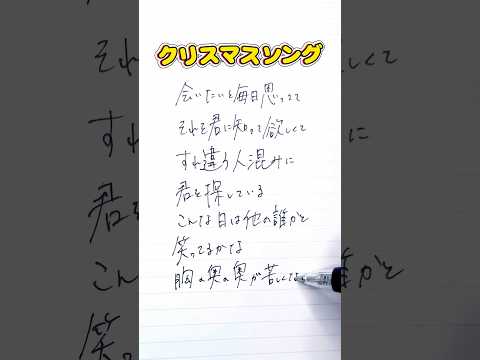 クリスマスソング
会いたいと毎日思ってて
それを君に知って欲しくて
すれ違う人混みに
君を探している
こんな日は他の誰かと
笑ってるかな
胸の奥の奥が苦しくな